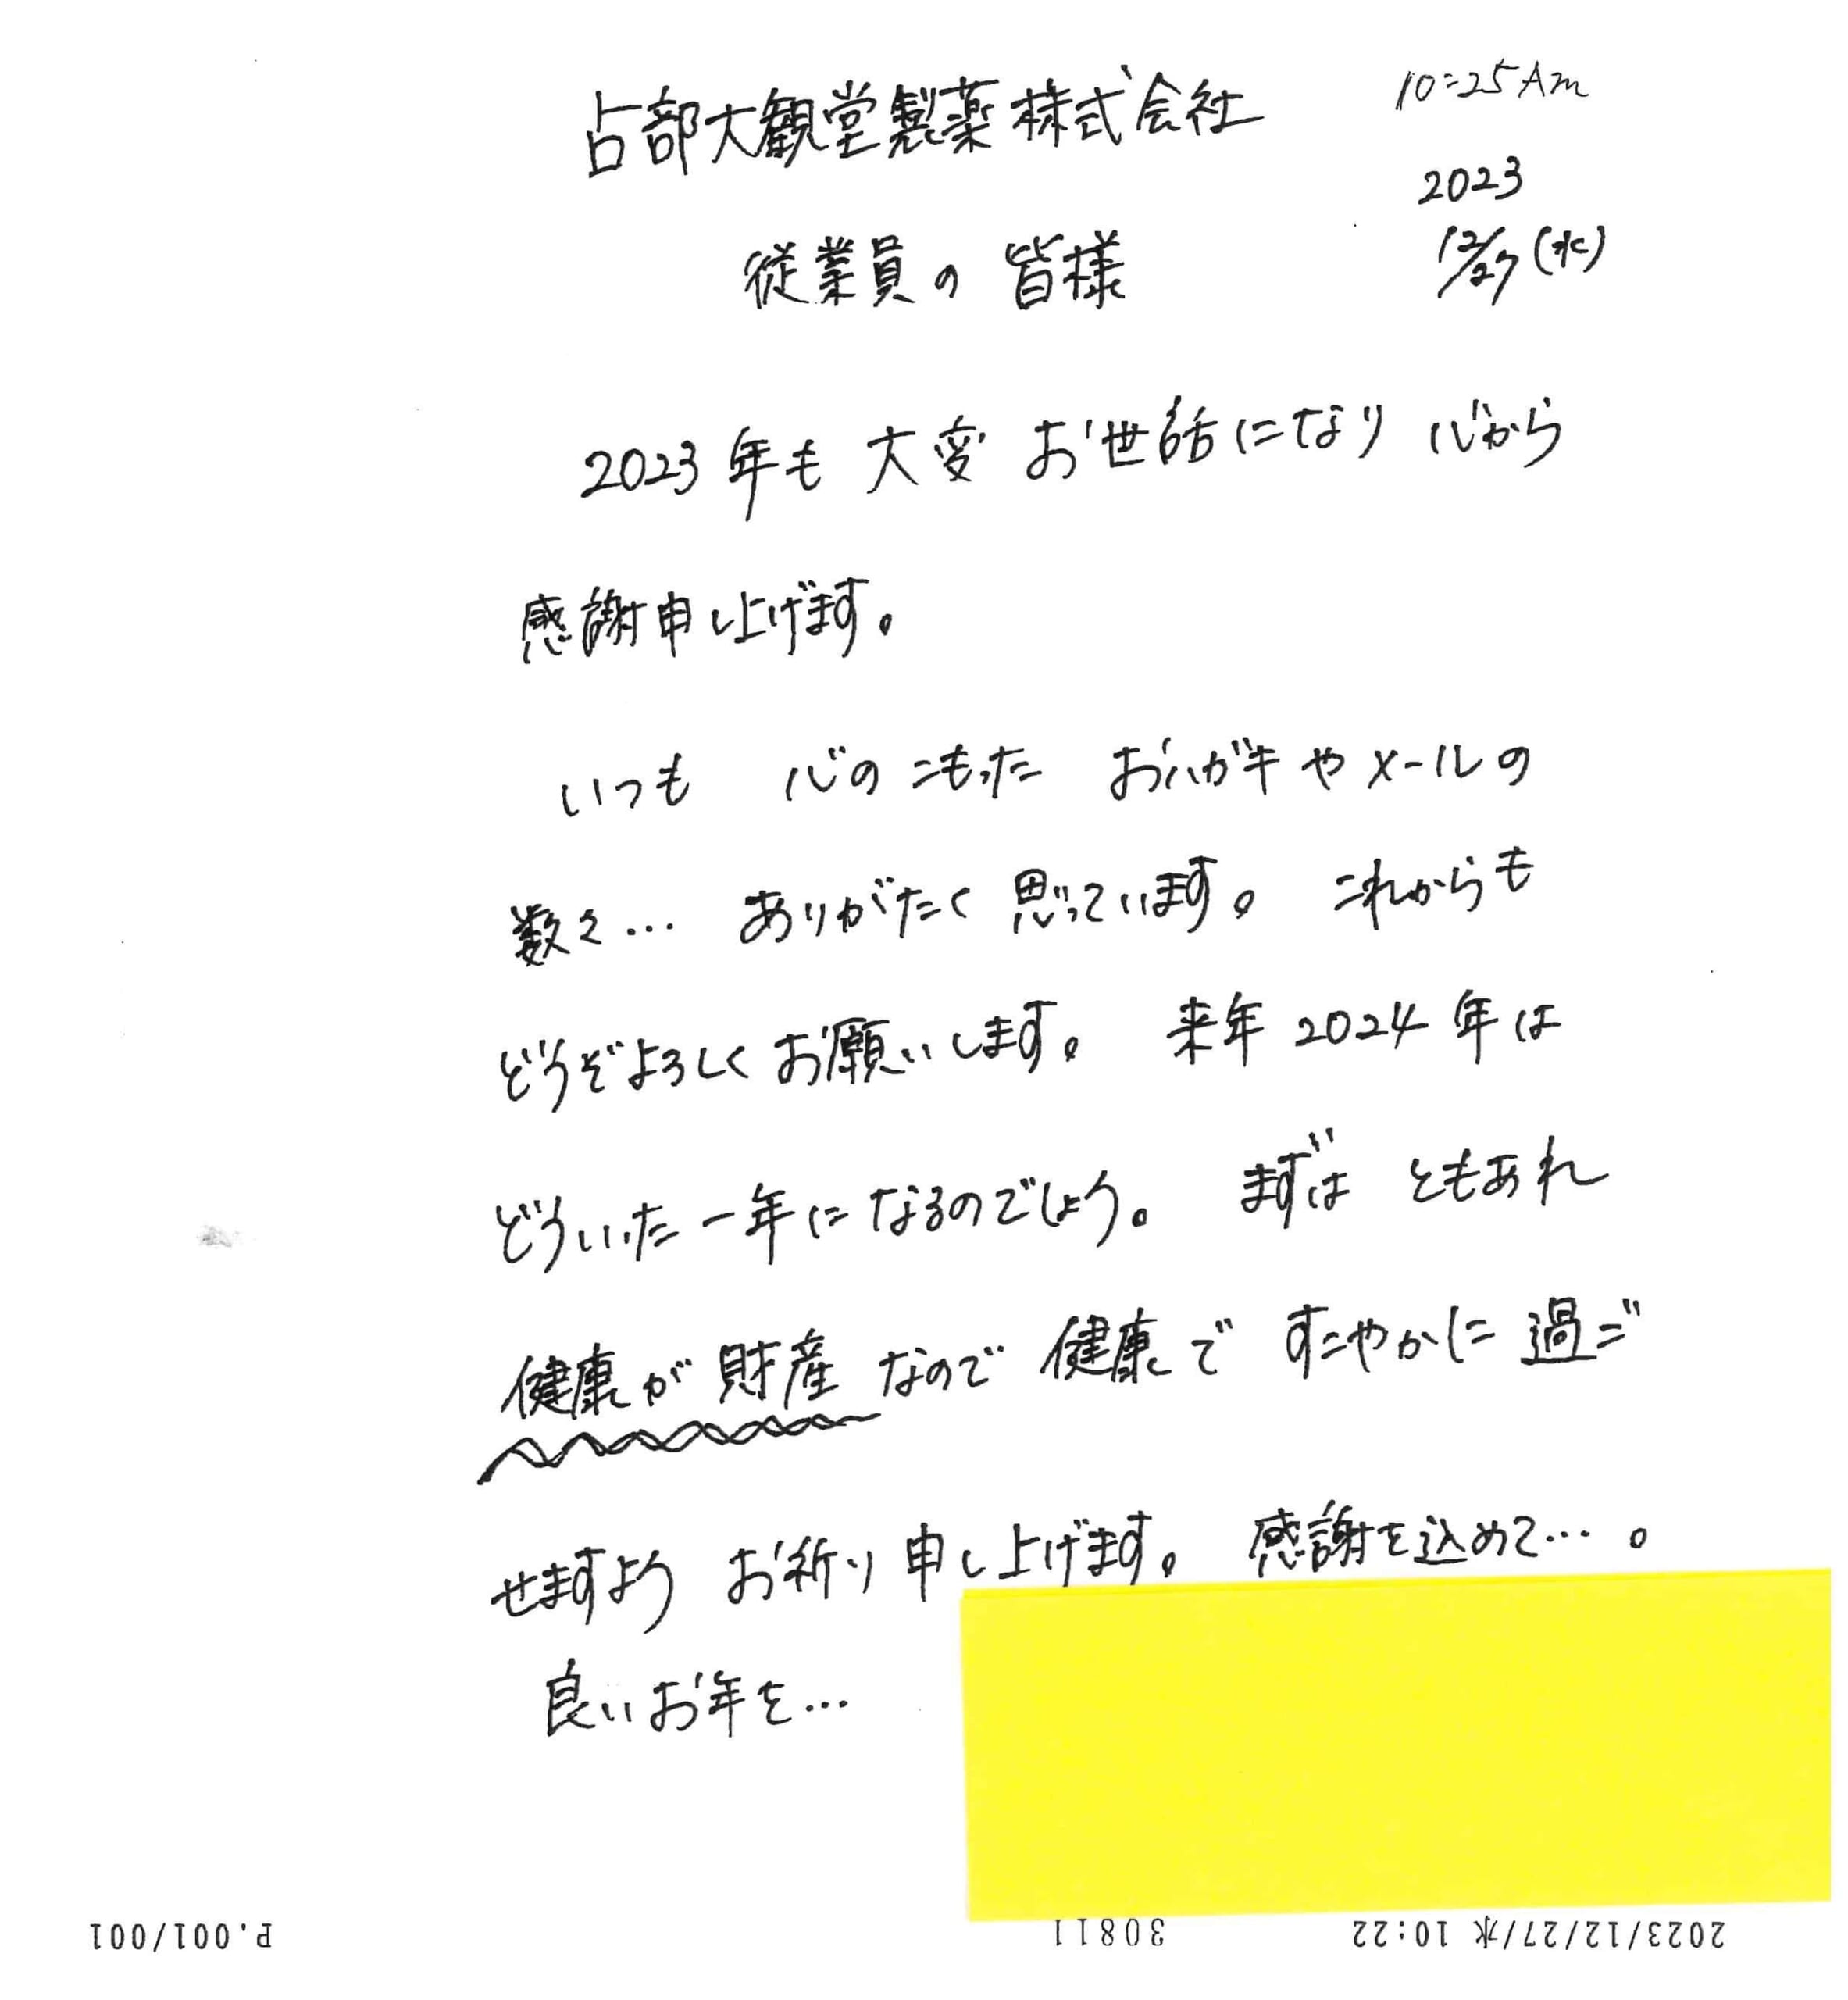 占部大観堂製薬株式会社
10:25Am
2023
12/27(水)
従業員の皆様
2023年も大変お世話になり心から
感謝申し上げます。
いつも 心のこもった おハガキやメールの
数々… ありがたく思っています。 これからも
どうぞよろしくお願いします。 来年2024年は
どういった一年になるのでしょう。 まずは ともあれ
健康が財産なので健康で すこやかに過ご
せますよう お祈り申し上げます。 感謝を込めて…。
良いお年を…
2023/12/27/水 10:22
30811
P.001/001